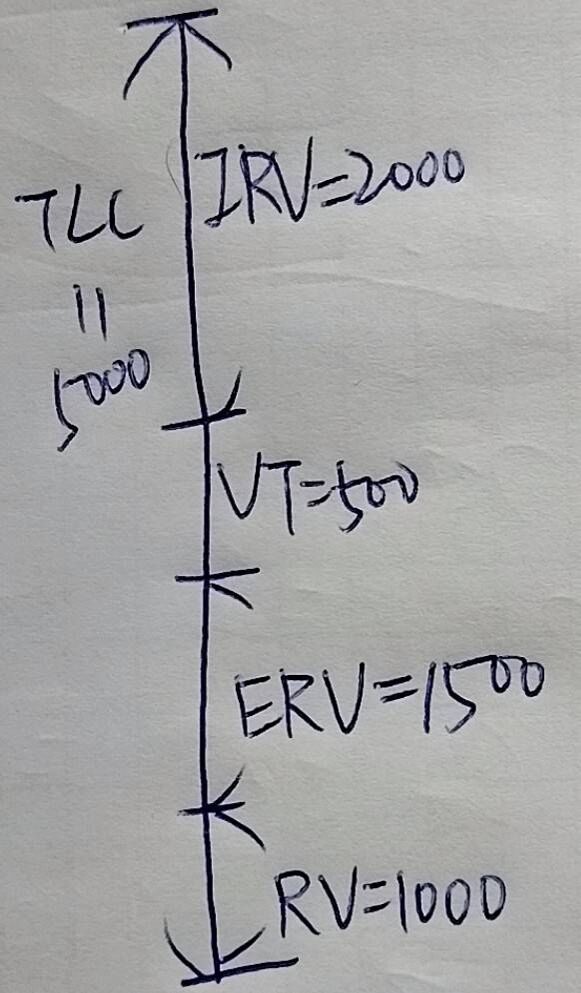 IRV=2000
TLC
=
5000
VT=500
ERV=1500
RV=1000